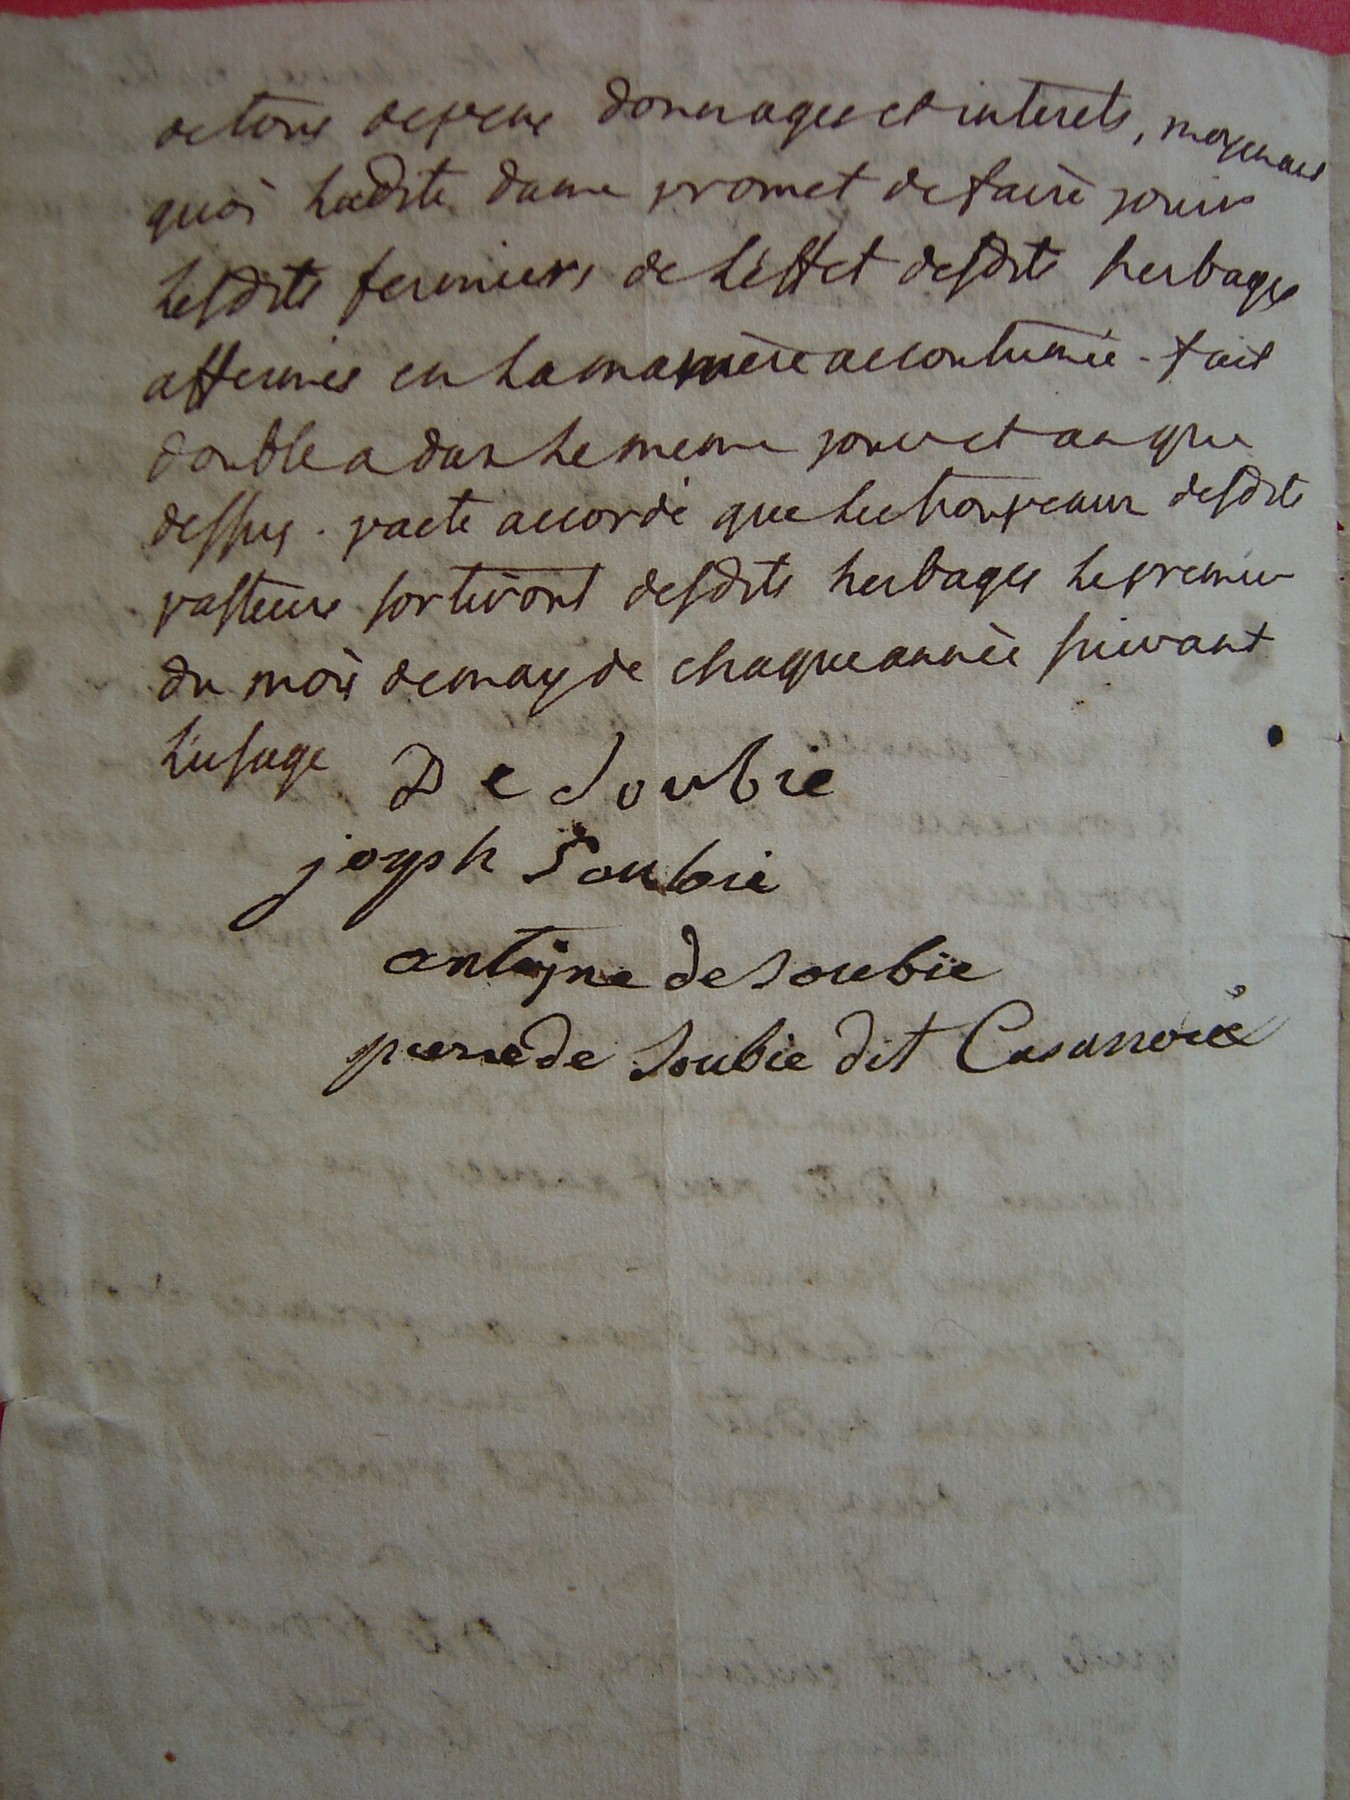 de tous depens dommages et interets, moyenant
quoi ladite dame promet de faire jouir
lesdits fermiers de l'effet desdits herbages
affermés en la manière accoutumée - fait
double a    le meme jour et an que
dessus . pacte accordé que les troupeaux desdits
pasteurs sortiront desdits herbages le premier
du mois de may de chaque année suivant
l'usage De Soubie
joseph Soubie
antojne de soubie
pierre de Soubie dit Casanove